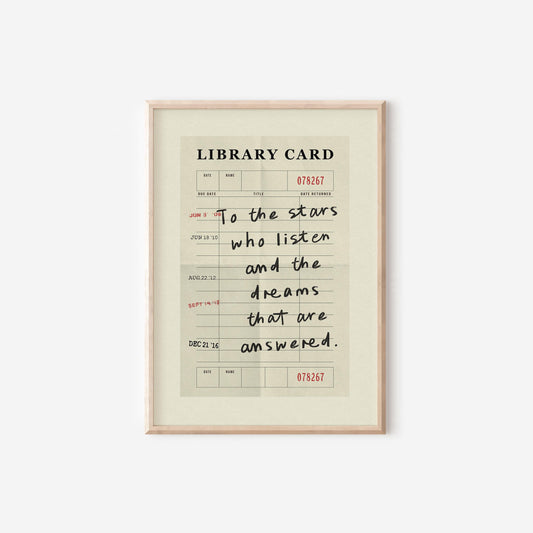 LIBRARY CARD
DATE NAME
078267
DUE DATE TITLE DATE RETURNED
JUN 3 '09 To the stars
JUN 13 '10 who listen
and the
AUG 22 '12 dreams
SEPT 14 '12 that are
DEC 21 '16 answered.
DATE NAME
078267